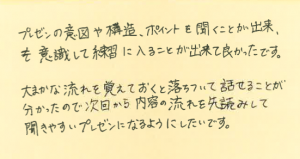 プレゼンの意図や構造、ポイントを聞くことが出来、
も意識して練習に入ることが出来て良かったです。
大まかな流れを覚えておくと落ちついて話せることが
分かったので次回から内容の流れを先読みして
聞きやすいプレゼンになるようにしたいです。